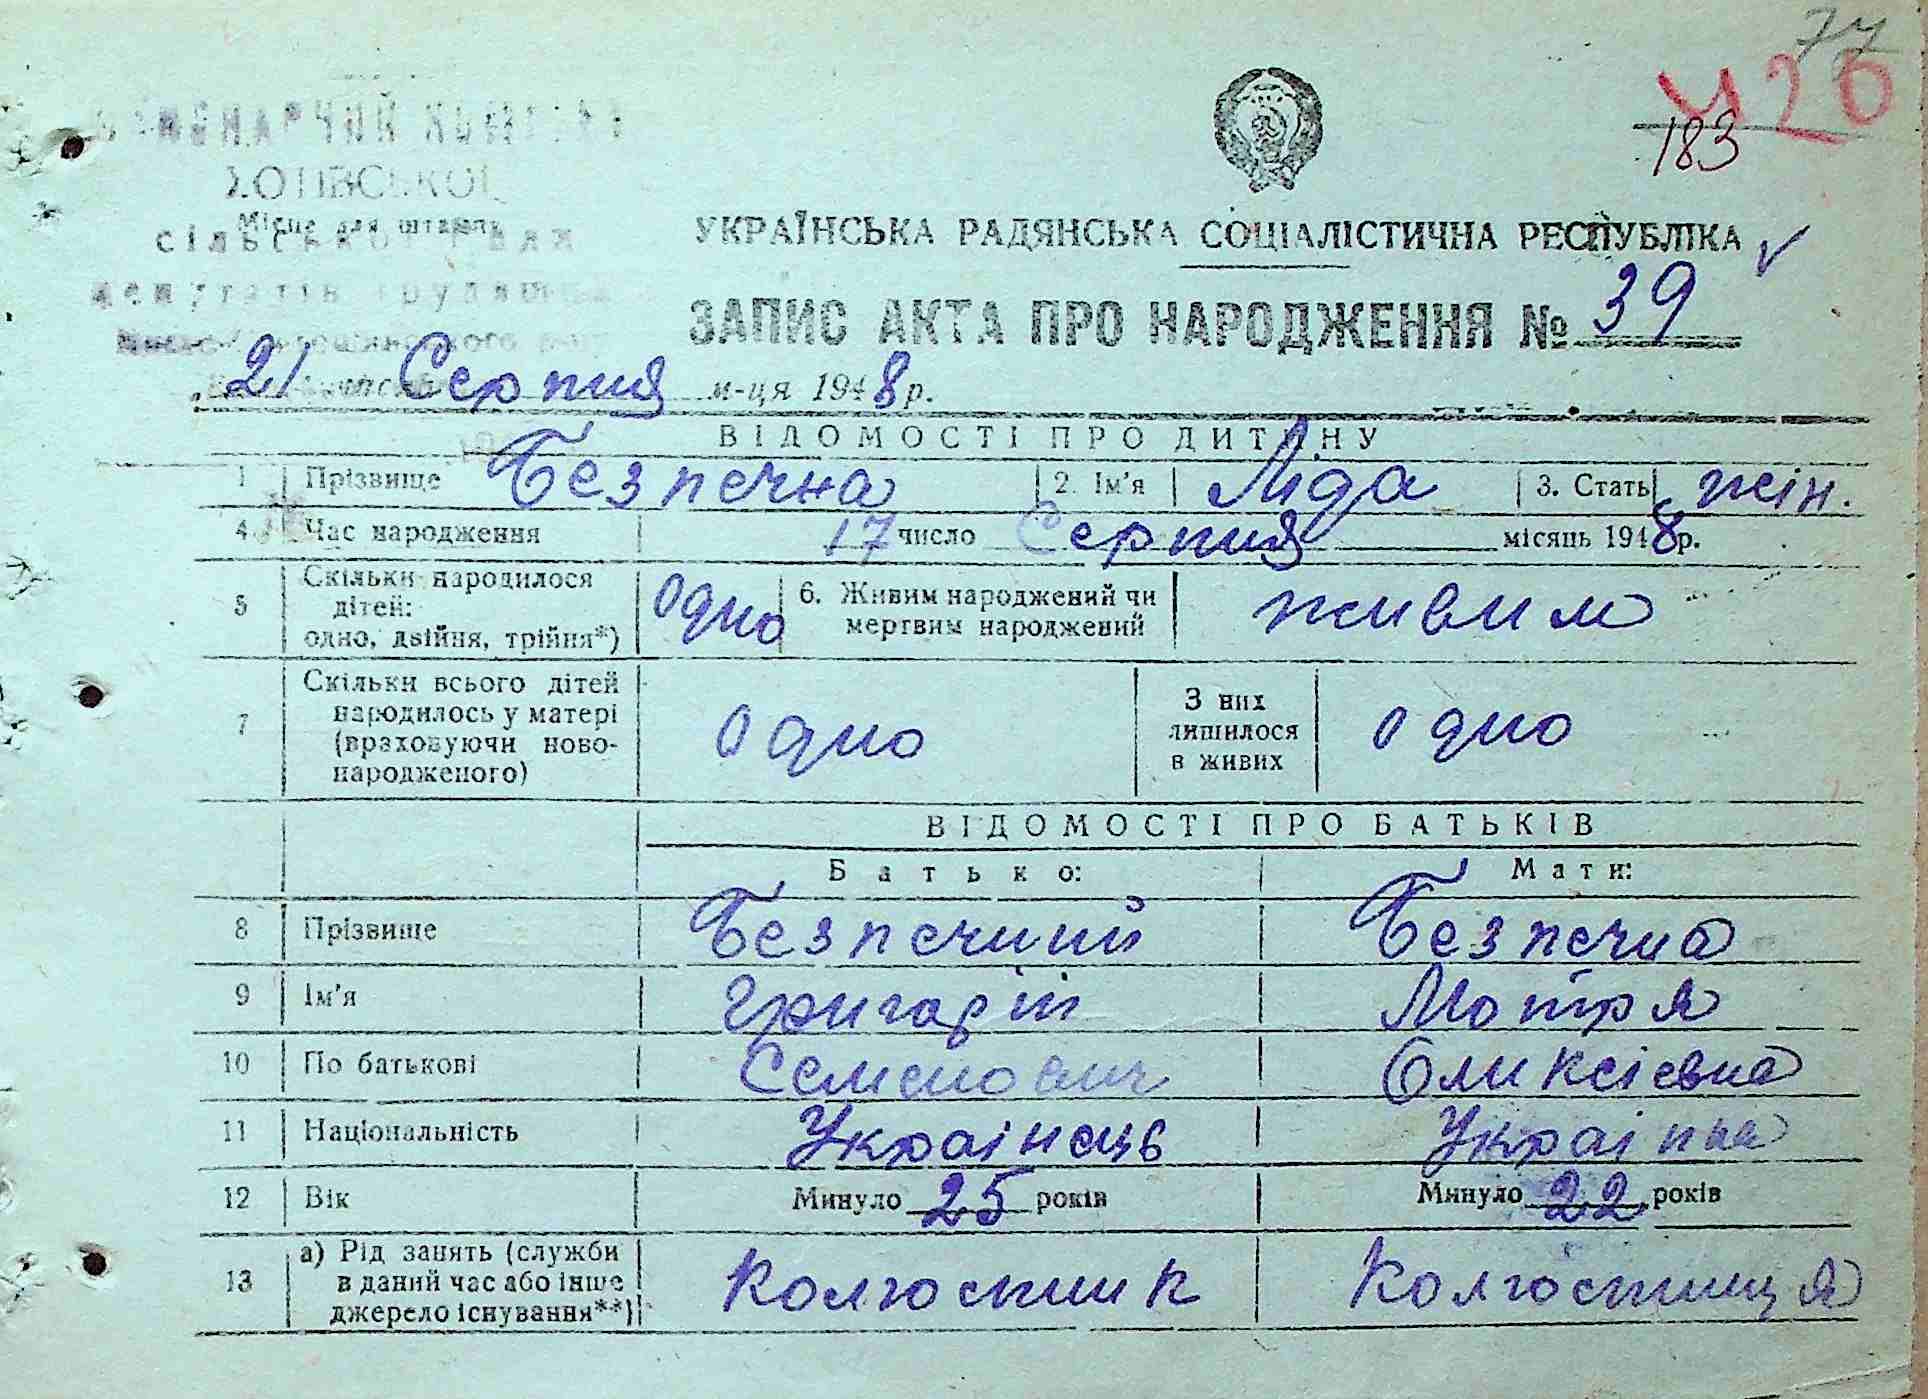 77
У26
183
ХОТІВСЬКОЇ
Місце для штампу
сільської ради
депутатів трудящих
УКРАЇНСЬКА РАДЯНСЬКА СОЦІАЛІСТИЧНА РЕСПУБЛІКА
ЗАПИС АКТА ПРО НАРОДЖЕННЯ № 39
21 Серпня м-ця 1948 р.
ВІДОМОСТІ ПРО ДИТИНУ
1 Прізвище Безпечна 2. Ім'я Ліда 3. Стать жін.
4 Час народження 17 число Серпня місяць 1948 р.
5 Скільки народилося дітей: одно, двійня, трійня*) Одно 6. Живим народжений чи мертвим народжений живим
7 Скільки всього дітей народилось у матері (враховуючи ново-народженого) Одно З них лишилося в живих Одно
ВІДОМОСТІ ПРО БАТЬКІВ
Батько: Мати:
8 Прізвище Безпечний Безпечна
9 Ім'я Григорій Мотря
10 По батькові Семенович Оликсіевна
11 Національність Украінець Украінка
12 Вік Минуло 25 років Минуло 22 років
13 а) Рід занять (служби в даний час або інше джерело існування**) Колгоспник Колгоспниця